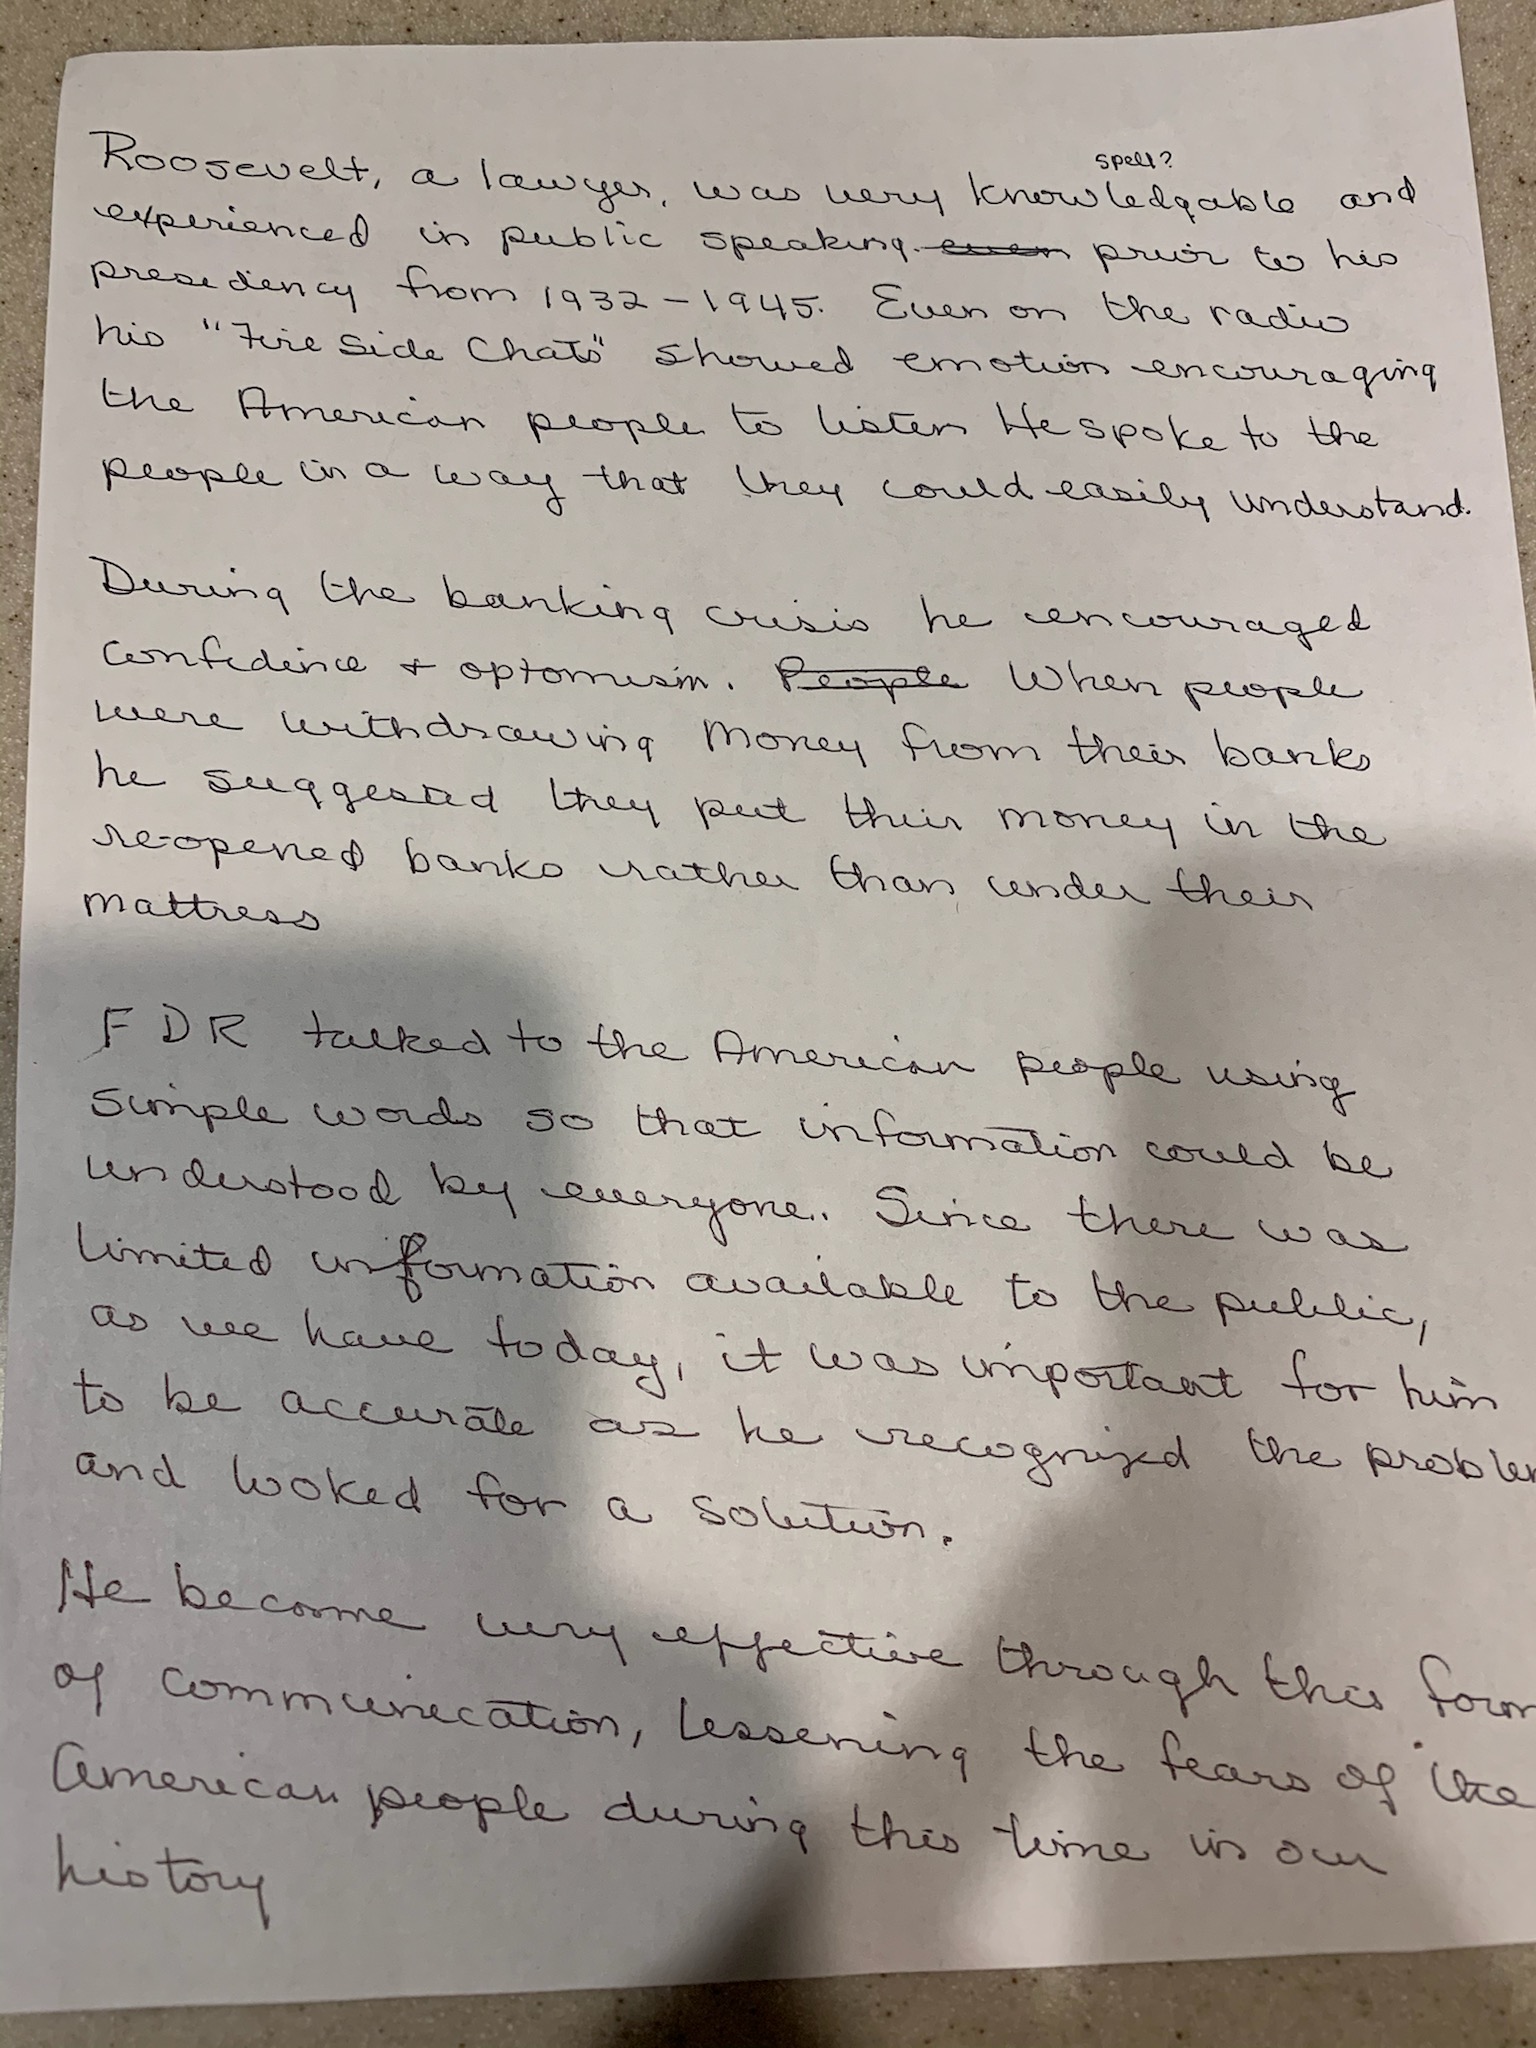 spell?
Roosevelt, a lawyer, was very knowledgable and
experienced in public speaking. even prior to his
presidency from 1932-1945. Even on the radio
his "Fire Side Chats" showed emotion encouraging
the American people to listen He spoke to the
people in a way that they could easily understand.
During the banking crisis he encouraged
confidence + optomism. People When people
were withdrawing money from their banks
he suggested they put their money in the
re-opened banks rather than under their
mattress
FDR talked to the American people using
simple words so that information could be
understood by everyone. Since there was
limited information available to the public,
as we have today, it was important for him
to be accurate as he recognized the problem
and looked for a solution.
He become very effective through this form
of communication, lessening the fears of the
American people during this time in our
history